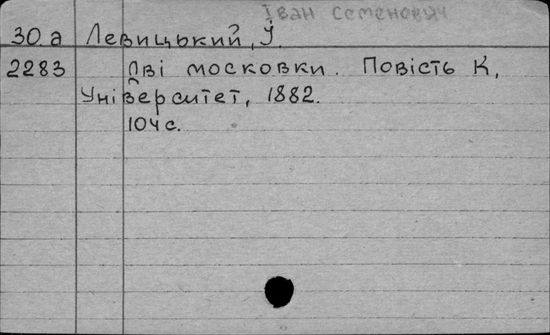 Іван Семенович
30.а Левицький, І.
2283 Дві московки. Повість К,
Університет, 1882.
104 с.